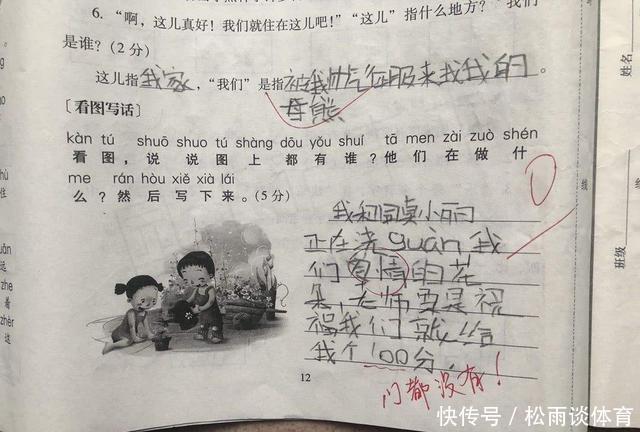 6. “啊，这儿真好！我们就住在这儿吧！”“这儿”指什么地方？“我们”
是谁？(2 分)
这儿指我家，“我们”是指被我帅气征服来找我的。
母熊
［看图写话］
kàn tú shuō shuo tú shàng dōu yǒu shuí tā men zài zuò shén
看图，说说图上都有谁？他们在做什
me rán hòu xiě xià lái
么？然后写下来。(5 分)
我和同桌小丽
正在浇guàn我
们享情的花
朵，老师要是祝
福我们就给
我个100分
门都没有！
0
12
uǎn
远
zhe
着
zhèr
这
住
姓名
班级
线
快传号 / 松雨谈体育